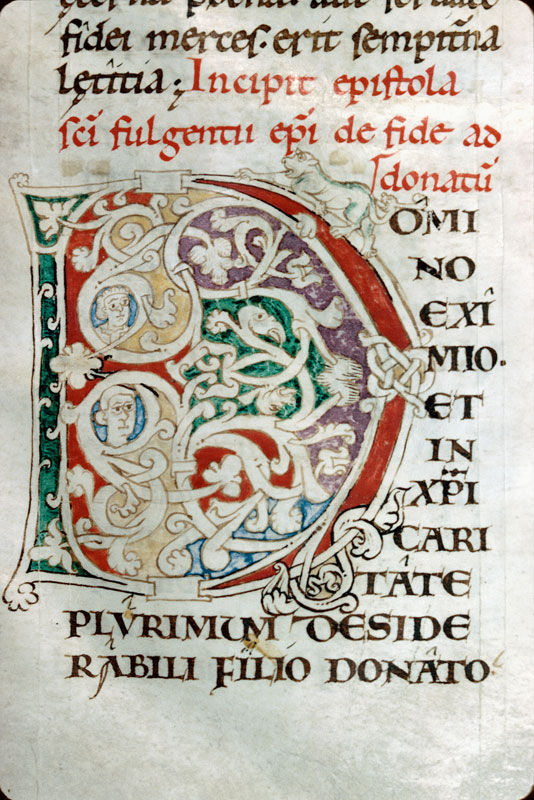 fidei merces. erit sempit̄na
lętitia; Incipit epistola
sc̄i fulgentii ep̄i de fide ad
donatū
DOMI
NO
EXI
MIO.
ET
IN
XP̄I
CARI
TATE
PLVRIMUM DESIDE
RABILI FILIO DONATO.